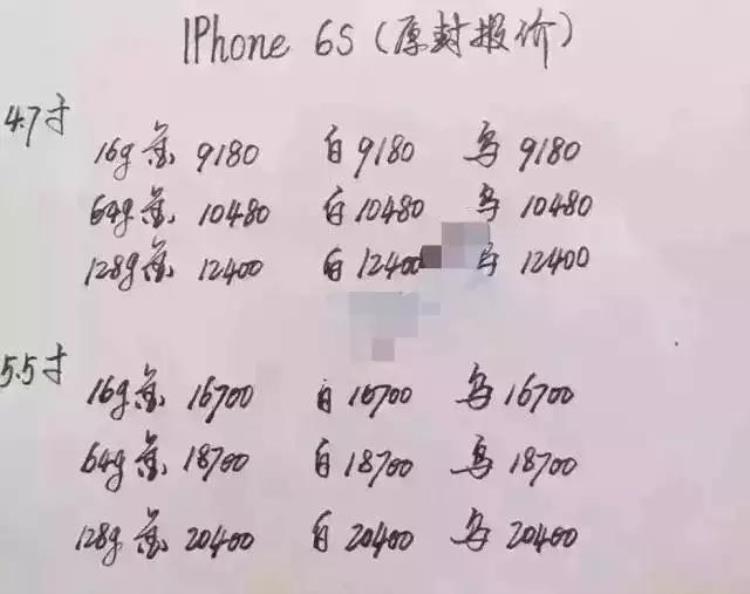 IPhone 6S (原封报价)
4.7寸
16g 金 9180 白 9180 乌 9180
64g 金 10480 白 10480 乌 10480
128g 金 12400 白 12400 乌 12400
5.5寸
16g 金 16700 白 16700 乌 16700
64g 金 18700 白 18700 乌 18700
128g 金 20400 白 20400 乌 20400